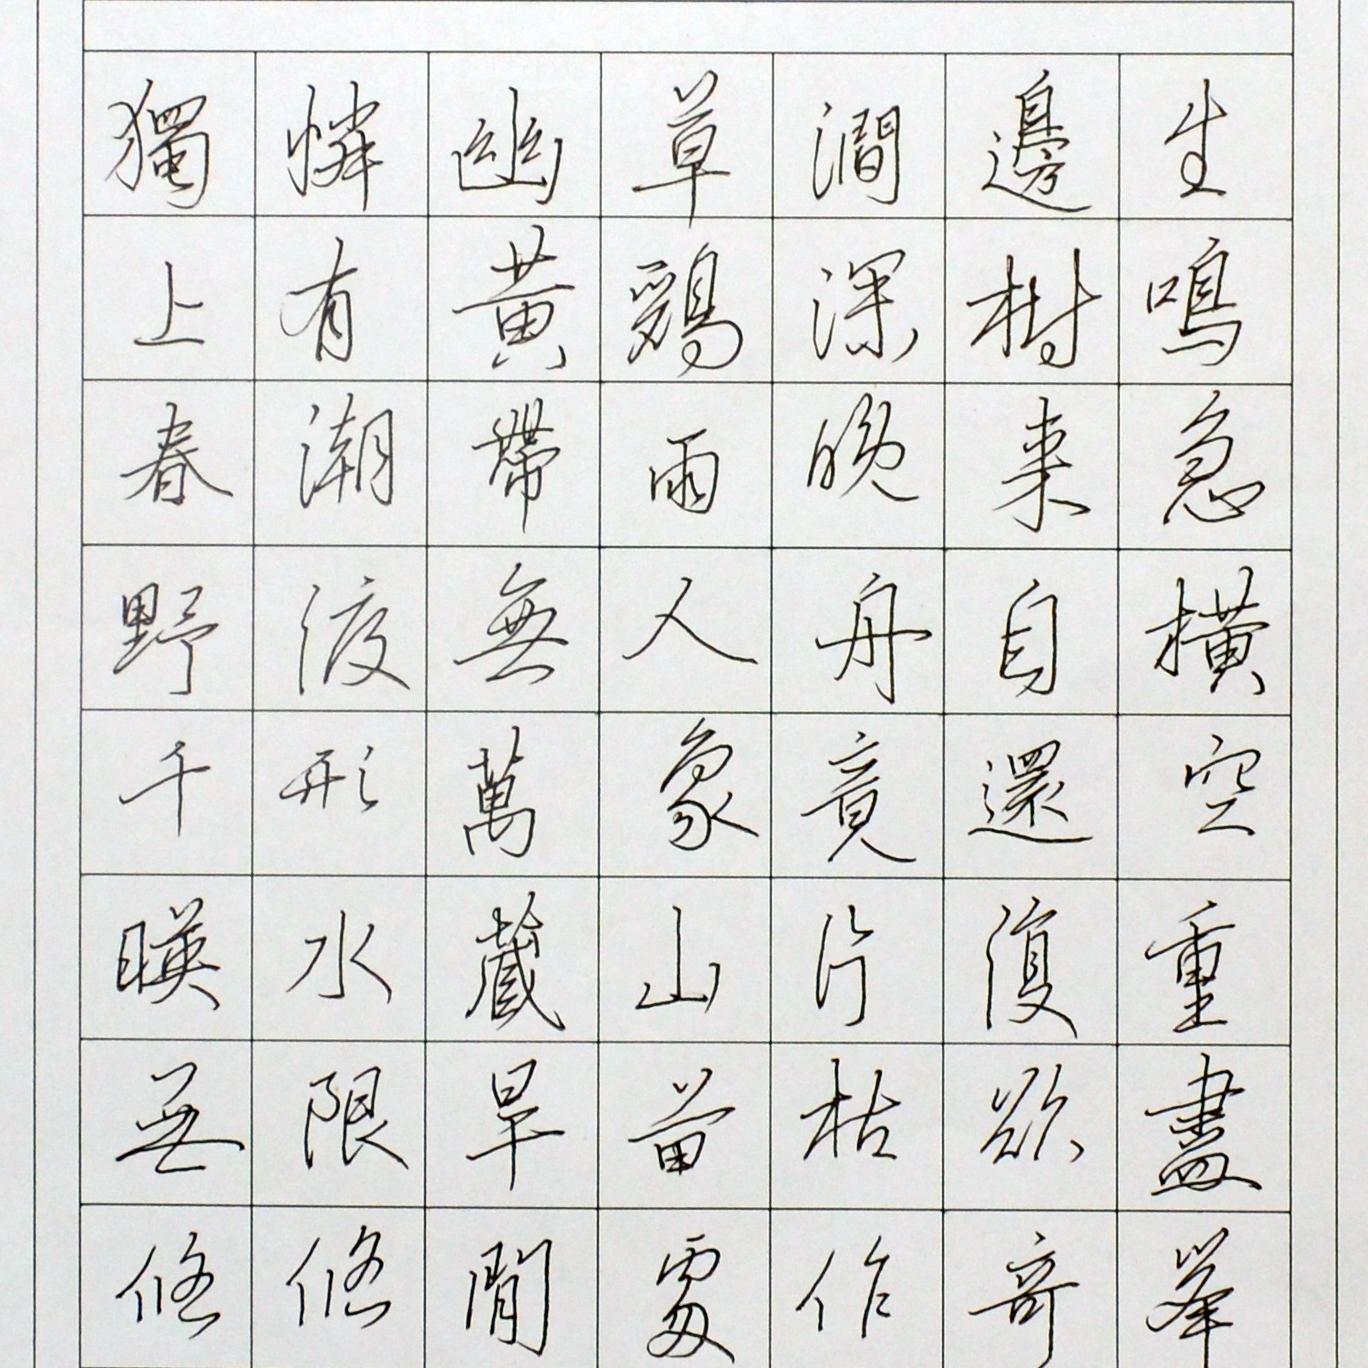 獨憐幽草澗邊生
上有黃鸝深樹鳴
春潮帶雨晚來急
野渡無人舟自橫
千形萬象竟還空
暎水藏山片復重
無限旱苗枯欲盡
悠悠閒處作奇峯